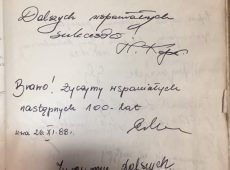 Dalszych wspaniałych
sukcesów!
Brawo! Życzymy wspaniałych
następnych 100-lat
dnia 26.XI.88.
dalszych